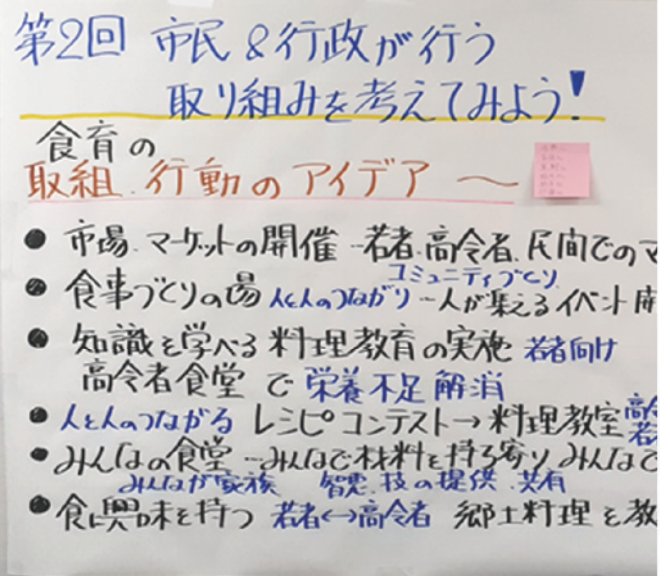 第2回 市民&行政が行う
取り組みを考えてみよう!
食育の
取組.行動のアイデア ～
● 市場.マーケットの開催 …若者.高令者.民間でのマ
コミュニティづくり
● 食事づくりの場 人と人のつながり …人が集えるイベント開
● 知識を学べる料理教育の実施 若者向け
高令者食堂で栄養不足解消
● 人と人のつながる レシピコンテスト→料理教室 高令
若者
● みんなの食堂 …みんなで材料を持ち寄り みんなで
みんなが家族 智恵.技の提供.共有
● 食に興味を持つ 若者↔高令者 郷土料理を教